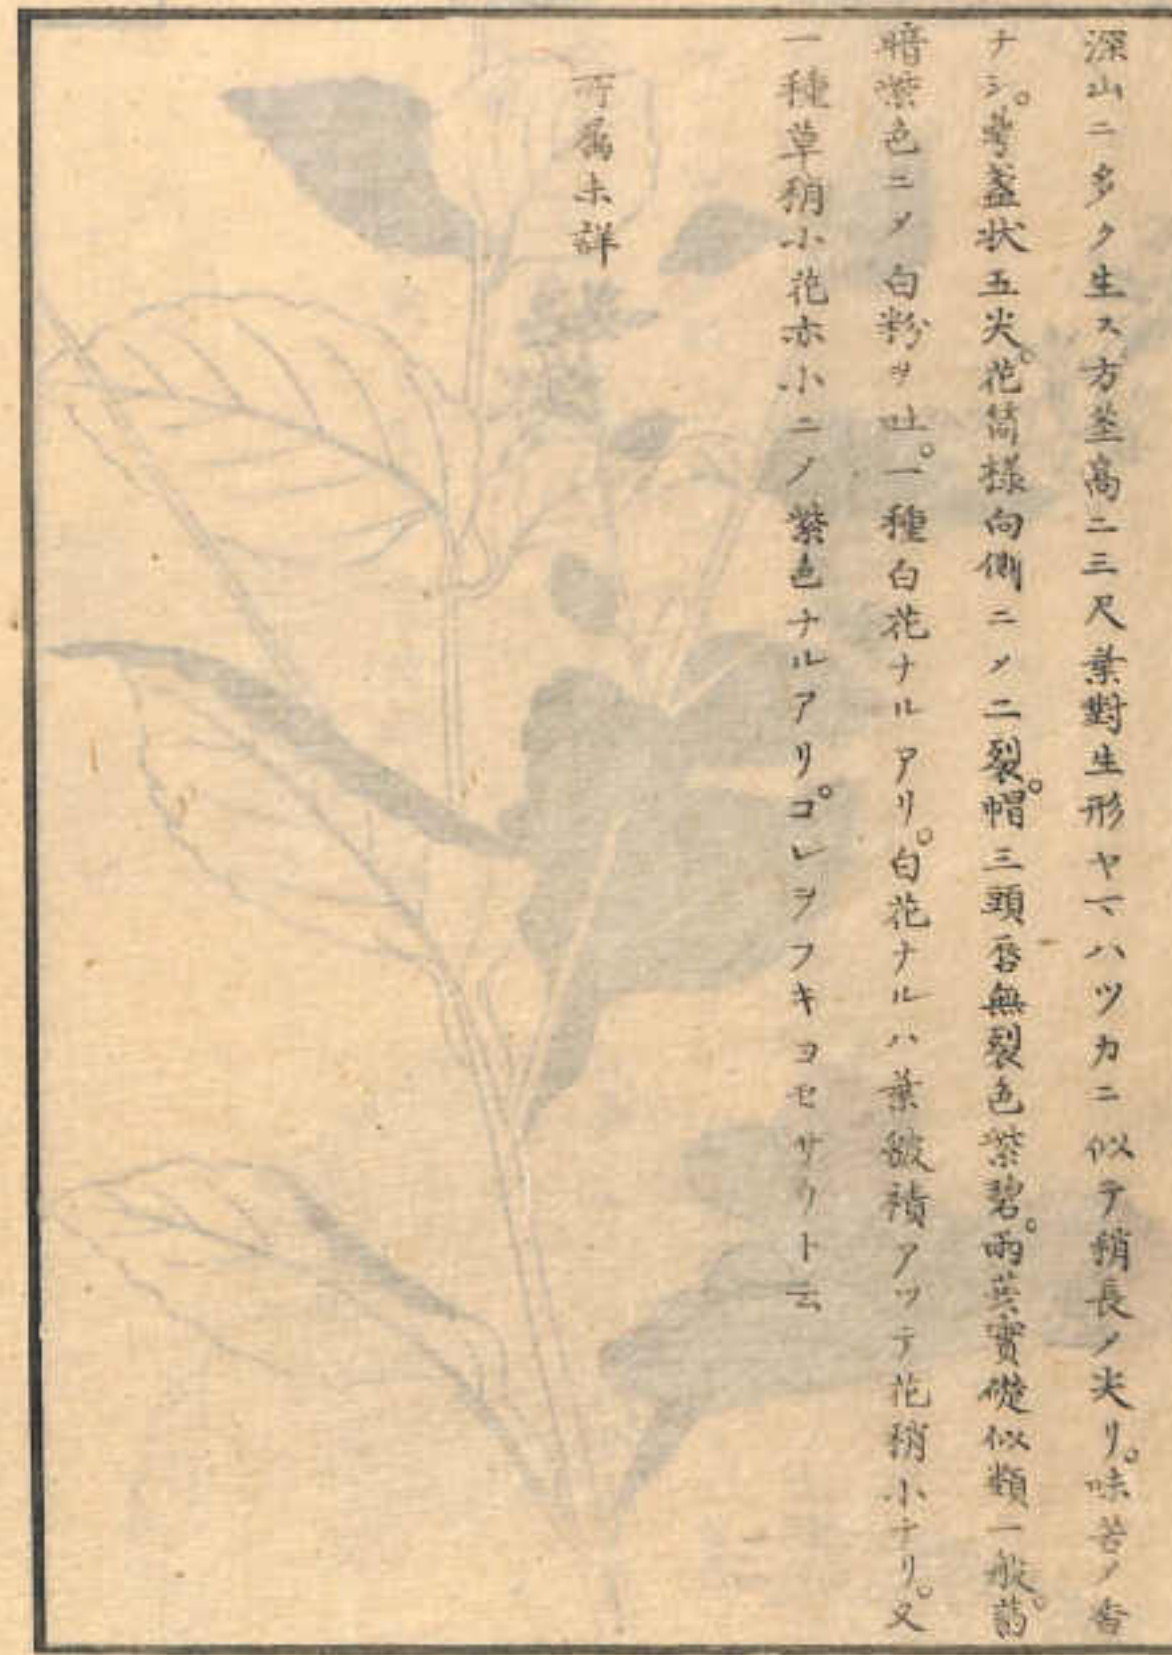 深山ニ多ク生ス方莖高二三尺葉對生形ヤマハツカニ似テ稍長ノ尖リ。味苦ノ香
ナシ。萼盞状五尖。花筒様向側ニノ二裂。帽三頭唇無裂色紫碧。兩莢實礎似類一般。葯
暗紫色ニノ白粉ヲ吐。一種白花ナルアリ。白花ナルハ葉皺襀アツテ花稍小ナリ。又
一種草稍小花亦小ニノ紫色ナルアリ。コレヲフキヨセサウト云
所屬未詳